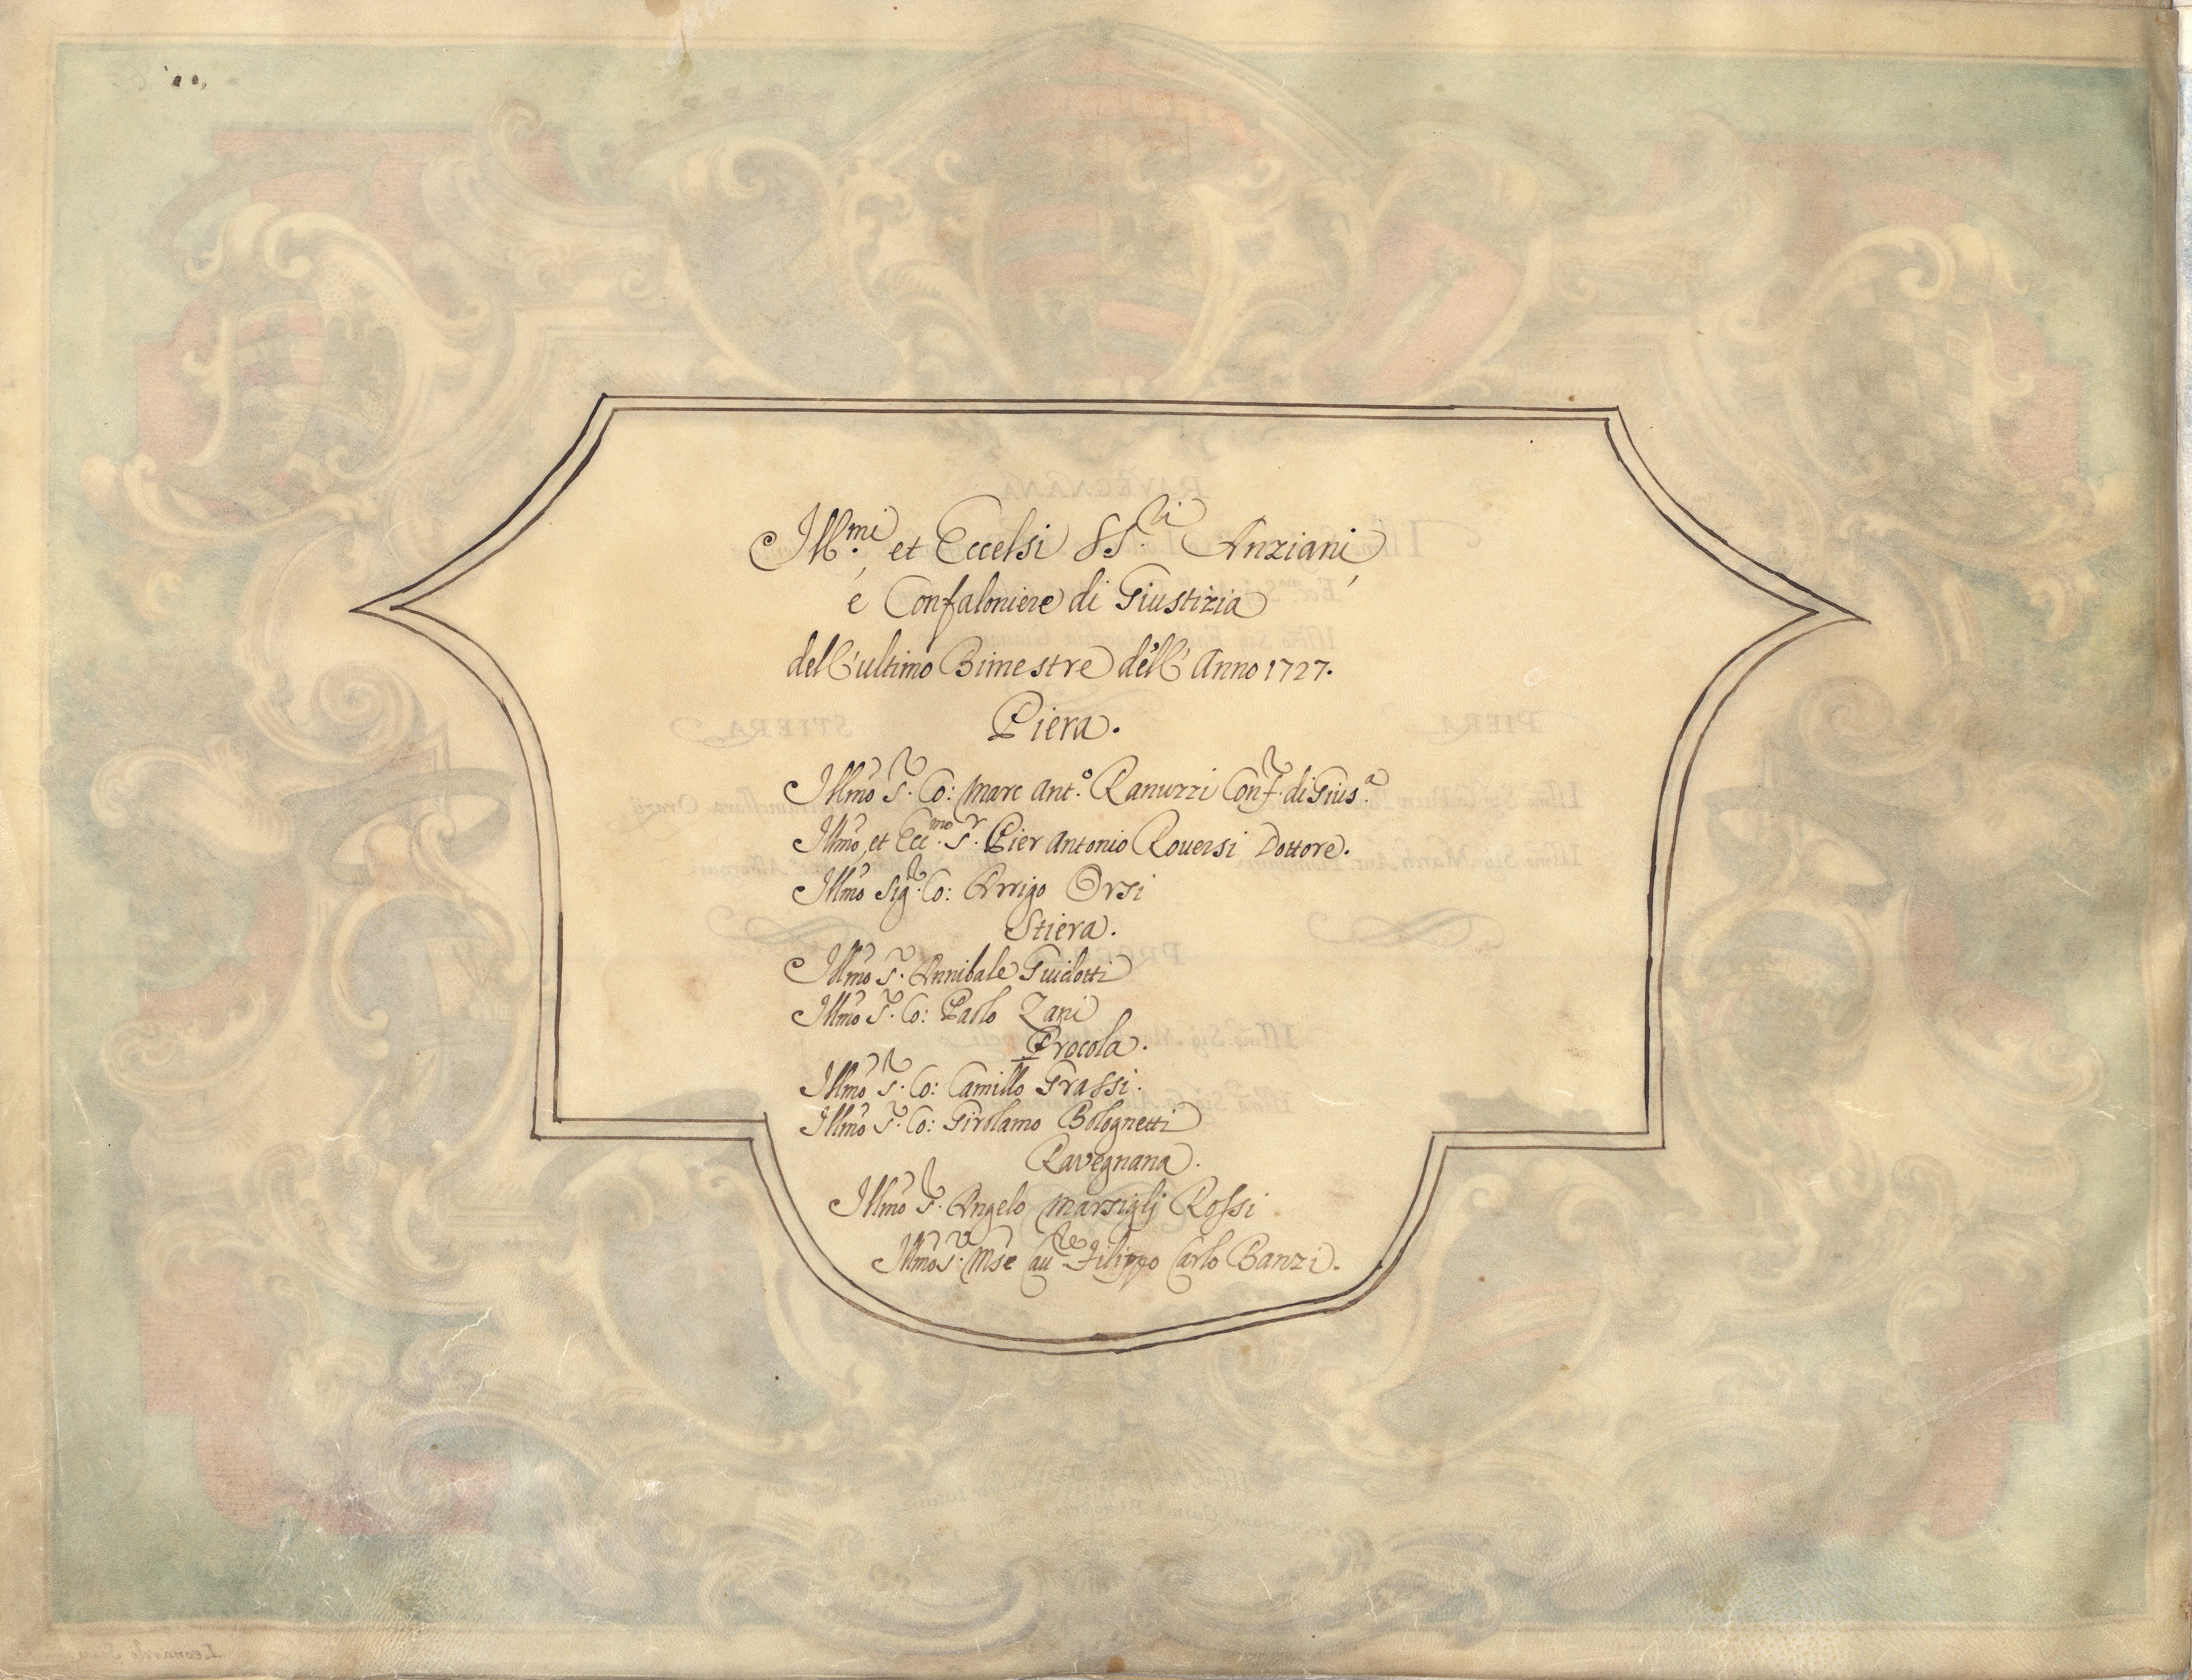 Ill.mi et Eccelsi SS.ri Anziani
é Confaloniere di Giustizia
dell'ultimo Bimestre dell'Anno 1727.
Piera.
Illmo S.r Co: Marc Ant.o Ranuzzi Conf.r di Gius.a
Illmo, et Ecc.mo S.r Pier Antonio Rouersi Dottore.
Illmo Sig.r Co: Arrigo Orsi
Stiera.
Illmo S.r Annibale Guidotti
Illmo S.r Co: Paolo Zani
Procola.
Illmo S.r Co: Camillo Grassi.
Illmo S.r Co: Girolamo Bolognetti
Ravegnana.
Illmo S.r Angelo Marsiglj Rossi
Illmo S.r Mse Cau.re Filippo Carlo Banzi.